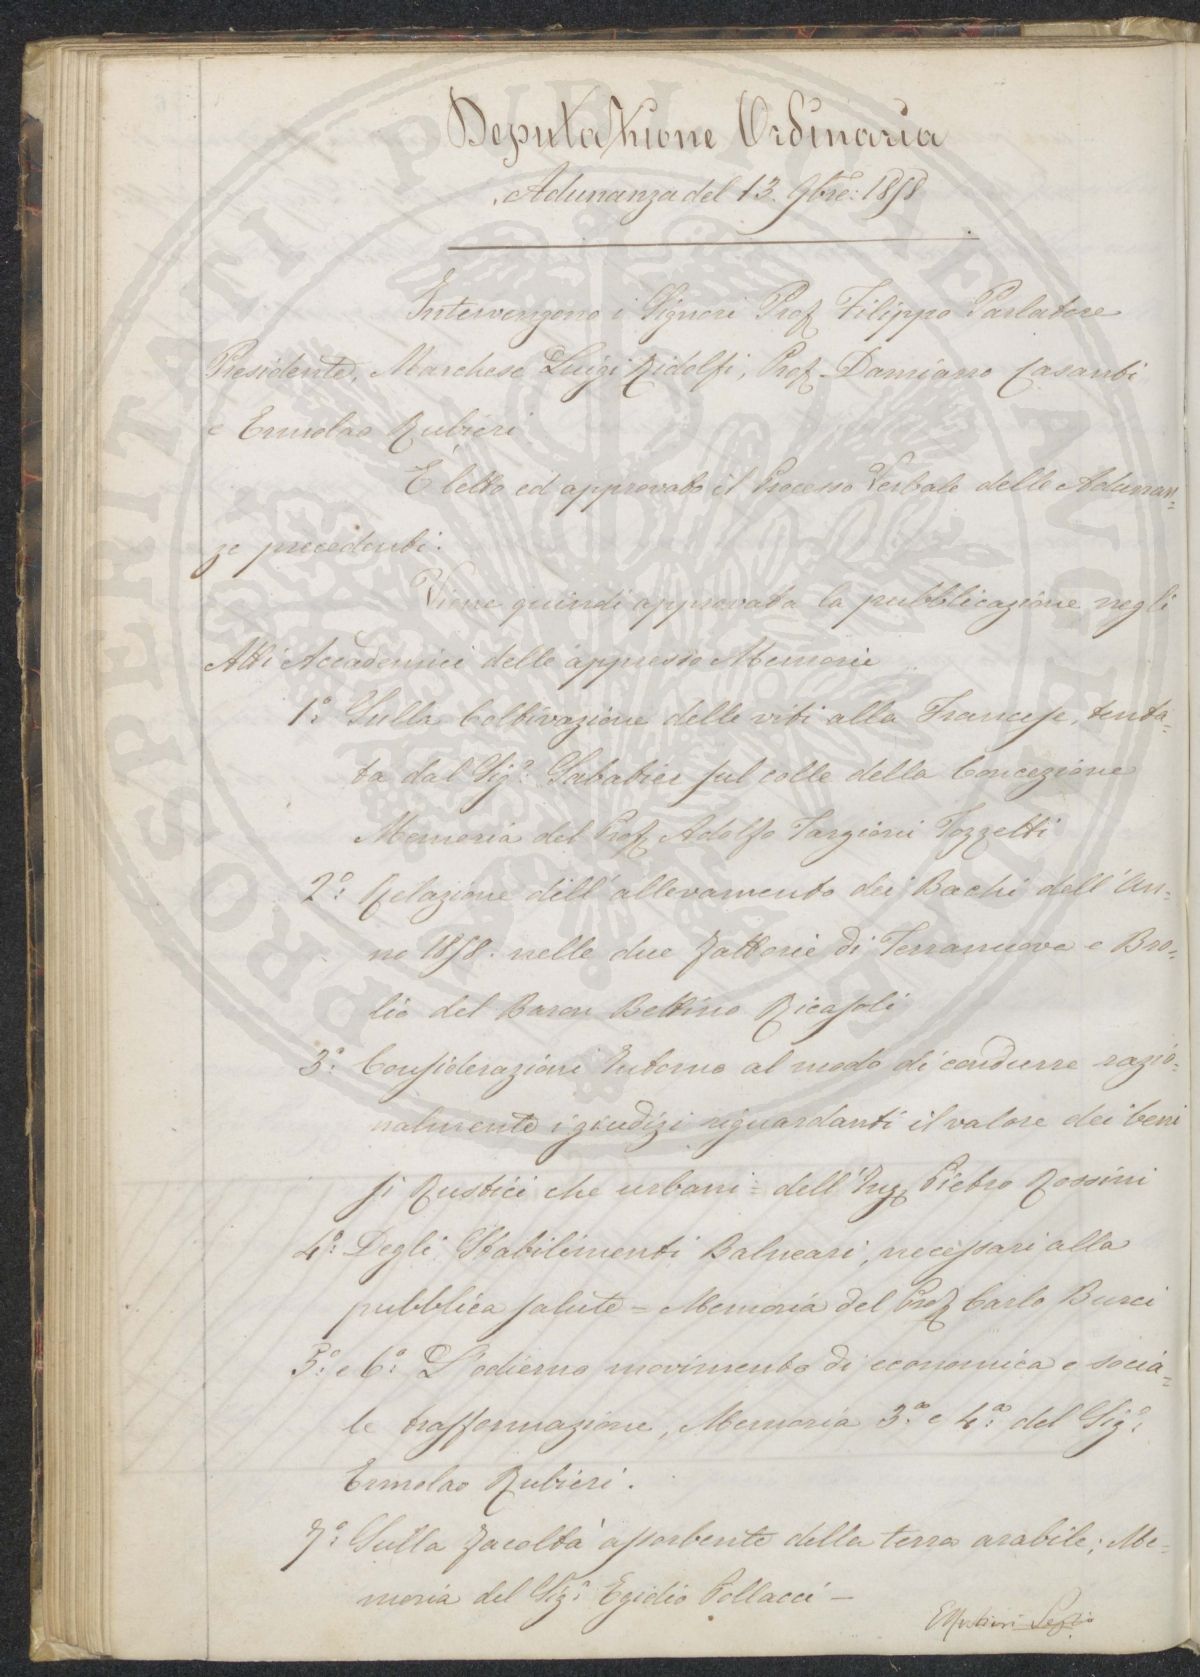 Deputazione Ordinaria
Adunanza del 13. 9bre: 1858
Intervengono i Signori Prof. Filippo Parlatore
Presidente, Marchese Luigi Ridolfi, Prof. Damiano Casanti
e Ermolao Rubieri
E' letto ed approvato il Processo Verbale delle Adunan=
ze precedenti.
Viene quindi approvata la pubblicazione negli
Atti Accademici delle appresso Memorie
1°: Sulla Coltivazione delle viti alla Francese, tenta=
ta dal Sig.r: Sabatier sul colle della Concezione
Memoria del Prof. Adolfo Targioni Tozzetti
2°: Relazione dell'allevamento dei Bachi dell'An=
no 1858. nelle due Fattorie di Terranuova e Bro=
lio del Baron Bettino Ricasoli
3°: Considerazioni Intorno al modo di condurre razio=
nalmente i giudizi riguardanti il valore dei beni
si Rustici che urbani = dell'Ing. Pietro Rossini
4°: Degli Stabilimenti Balneari, necessari alla
pubblica salute = Memoria del Prof. Carlo Burci
5°: e 6°: L'odierno movimento di economica e socia=
le trasformazione, Memoria 3.a e 4.a del Sig.r
Ermolao Rubieri.
7°: Sulla Facoltà assorbente della terra arabile; Me=
moria del Sig.r Egidio Pollacci —
E Rubieri Seg.rio
PROSPERITATI PUBLICAE AUGENDAE